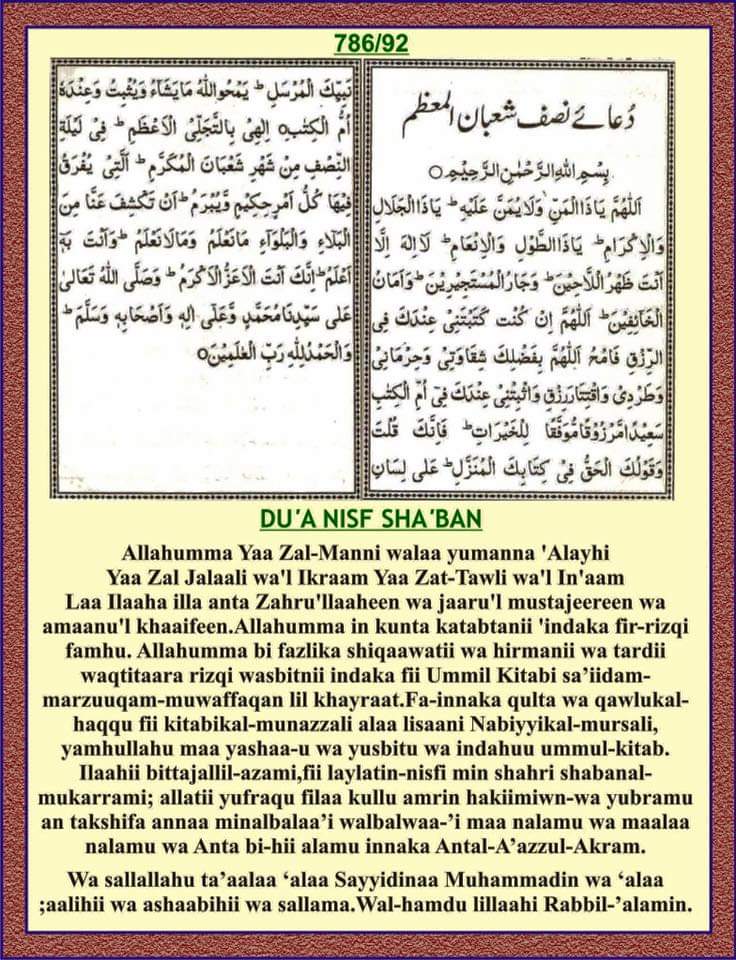 786/92
دُعائے نصف شعبان المعظم
بِسْمِ اللهِ الرَّحْمٰنِ الرَّحِيْمِ○
اَللّٰهُمَّ يَاذَا الْمَنِّ وَلَا يُمَنُّ عَلَيْهِ ؕ يَاذَا الْجَلَالِ
وَالْاِكْرَامِ ؕ يَاذَا الطَّوْلِ وَالْاِنْعَامِ ؕ لَآ اِلٰهَ اِلَّا
اَنْتَ ظَهْرُ اللَّاجِيْنَ ؕ وَجَارُ الْمُسْتَجِيْرِيْنَ ؕ وَاَمَانُ
الْخَآئِفِيْنَ ؕ اَللّٰهُمَّ اِنْ كُنْتَ كَتَبْتَنِيْ عِنْدَكَ فِى
الرِّزْقِ فَامْحُ اَللّٰهُمَّ بِفَضْلِكَ شِقَاوَتِيْ وَحِرْمَانِيْ
وَطَرْدِيْ وَاقْتِتَارَ رِزْقِيْ وَاثْبِتْنِيْ عِنْدَكَ فِيْ اُمِّ الْكِتٰبِ
سَعِيْدًا مَّرْزُوْقًا مُّوَفَّقًا لِّلْخَيْرَاتِ ؕ فَاِنَّكَ قُلْتَ
وَقَوْلُكَ الْحَقُّ فِيْ كِتَابِكَ الْمُنَزَّلِ ؕ عَلٰى لِسَانِ
نَبِيِّكَ الْمُرْسَلِ ؕ يَمْحُوا اللهُ مَا يَشَآءُ وَيُثْبِتُ وَعِنْدَهٗ
اُمُّ الْكِتٰبِ○ اِلٰهِيْ بِالتَّجَلِّيْ الْاَعْظَمِ ؕ فِيْ لَيْلَةِ
النِّصْفِ مِنْ شَهْرِ شَعْبَانَ الْمُكَرَّمِ ؕ الَّتِيْ يُفْرَقُ
فِيْهَا كُلُّ اَمْرٍ حَكِيْمٍ وَّيُبْرَمُ ؕ اَنْ تَكْشِفَ عَنَّا مِنَ
الْبَلَآءِ وَالْبَلْوَآءِ مَا نَعْلَمُ وَمَا لَا نَعْلَمُ ؕ وَاَنْتَ بِهٖ
اَعْلَمُ ؕ اِنَّكَ اَنْتَ الْاَعَزُّ الْاَكْرَمُ ؕ وَصَلَّى اللهُ تَعَالٰى
عَلٰى سَيِّدِنَا مُحَمَّدٍ وَّعَلٰى اٰلِهٖ وَاَصْحَابِهٖ وَسَلَّمَ ؕ
وَالْحَمْدُ لِلّٰهِ رَبِّ الْعٰلَمِيْنَ○
DU'A NISF SHA'BAN
Allahumma Yaa Zal-Manni walaa yumanna 'Alayhi
Yaa Zal Jalaali wa'l Ikraam Yaa Zat-Tawli wa'l In'aam
Laa Ilaaha illa anta Zahru'llaaheen wa jaaru'l mustajeereen wa
amaanu'l khaaifeen.Allahumma in kunta katabtanii 'indaka fir-rizqi
famhu. Allahumma bi fazlika shiqaawatii wa hirmanii wa tardii
waqtitaara rizqi wasbitnii indaka fii Ummil Kitabi sa’iidam-
marzuuqam-muwaffaqan lil khayraat.Fa-innaka qulta wa qawlukal-
haqqu fii kitabikal-munazzali alaa lisaani Nabiyyikal-mursali,
yamhullahu maa yashaa-u wa yusbitu wa indahuu ummul-kitab.
Ilaahii bittajallil-azami,fii laylatin-nisfi min shahri shabanal-
mukarrami; allatii yufraqu filaa kullu amrin hakiimiwn-wa yubramu
an takshifa annaa minalbalaa’i walbalwaa-’i maa nalamu wa maalaa
nalamu wa Anta bi-hii alamu innaka Antal-A’azzul-Akram.
Wa sallallahu ta’aalaa ‘alaa Sayyidinaa Muhammadin wa ‘alaa
;aalihii wa ashaabihii wa sallama.Wal-hamdu lillaahi Rabbil-’alamin.